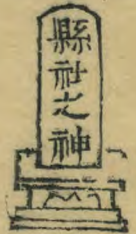 縣社之神